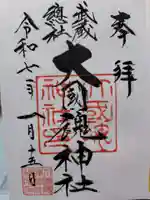 奉拝
武蔵
總社
大國魂神社
令和七年一月十五日